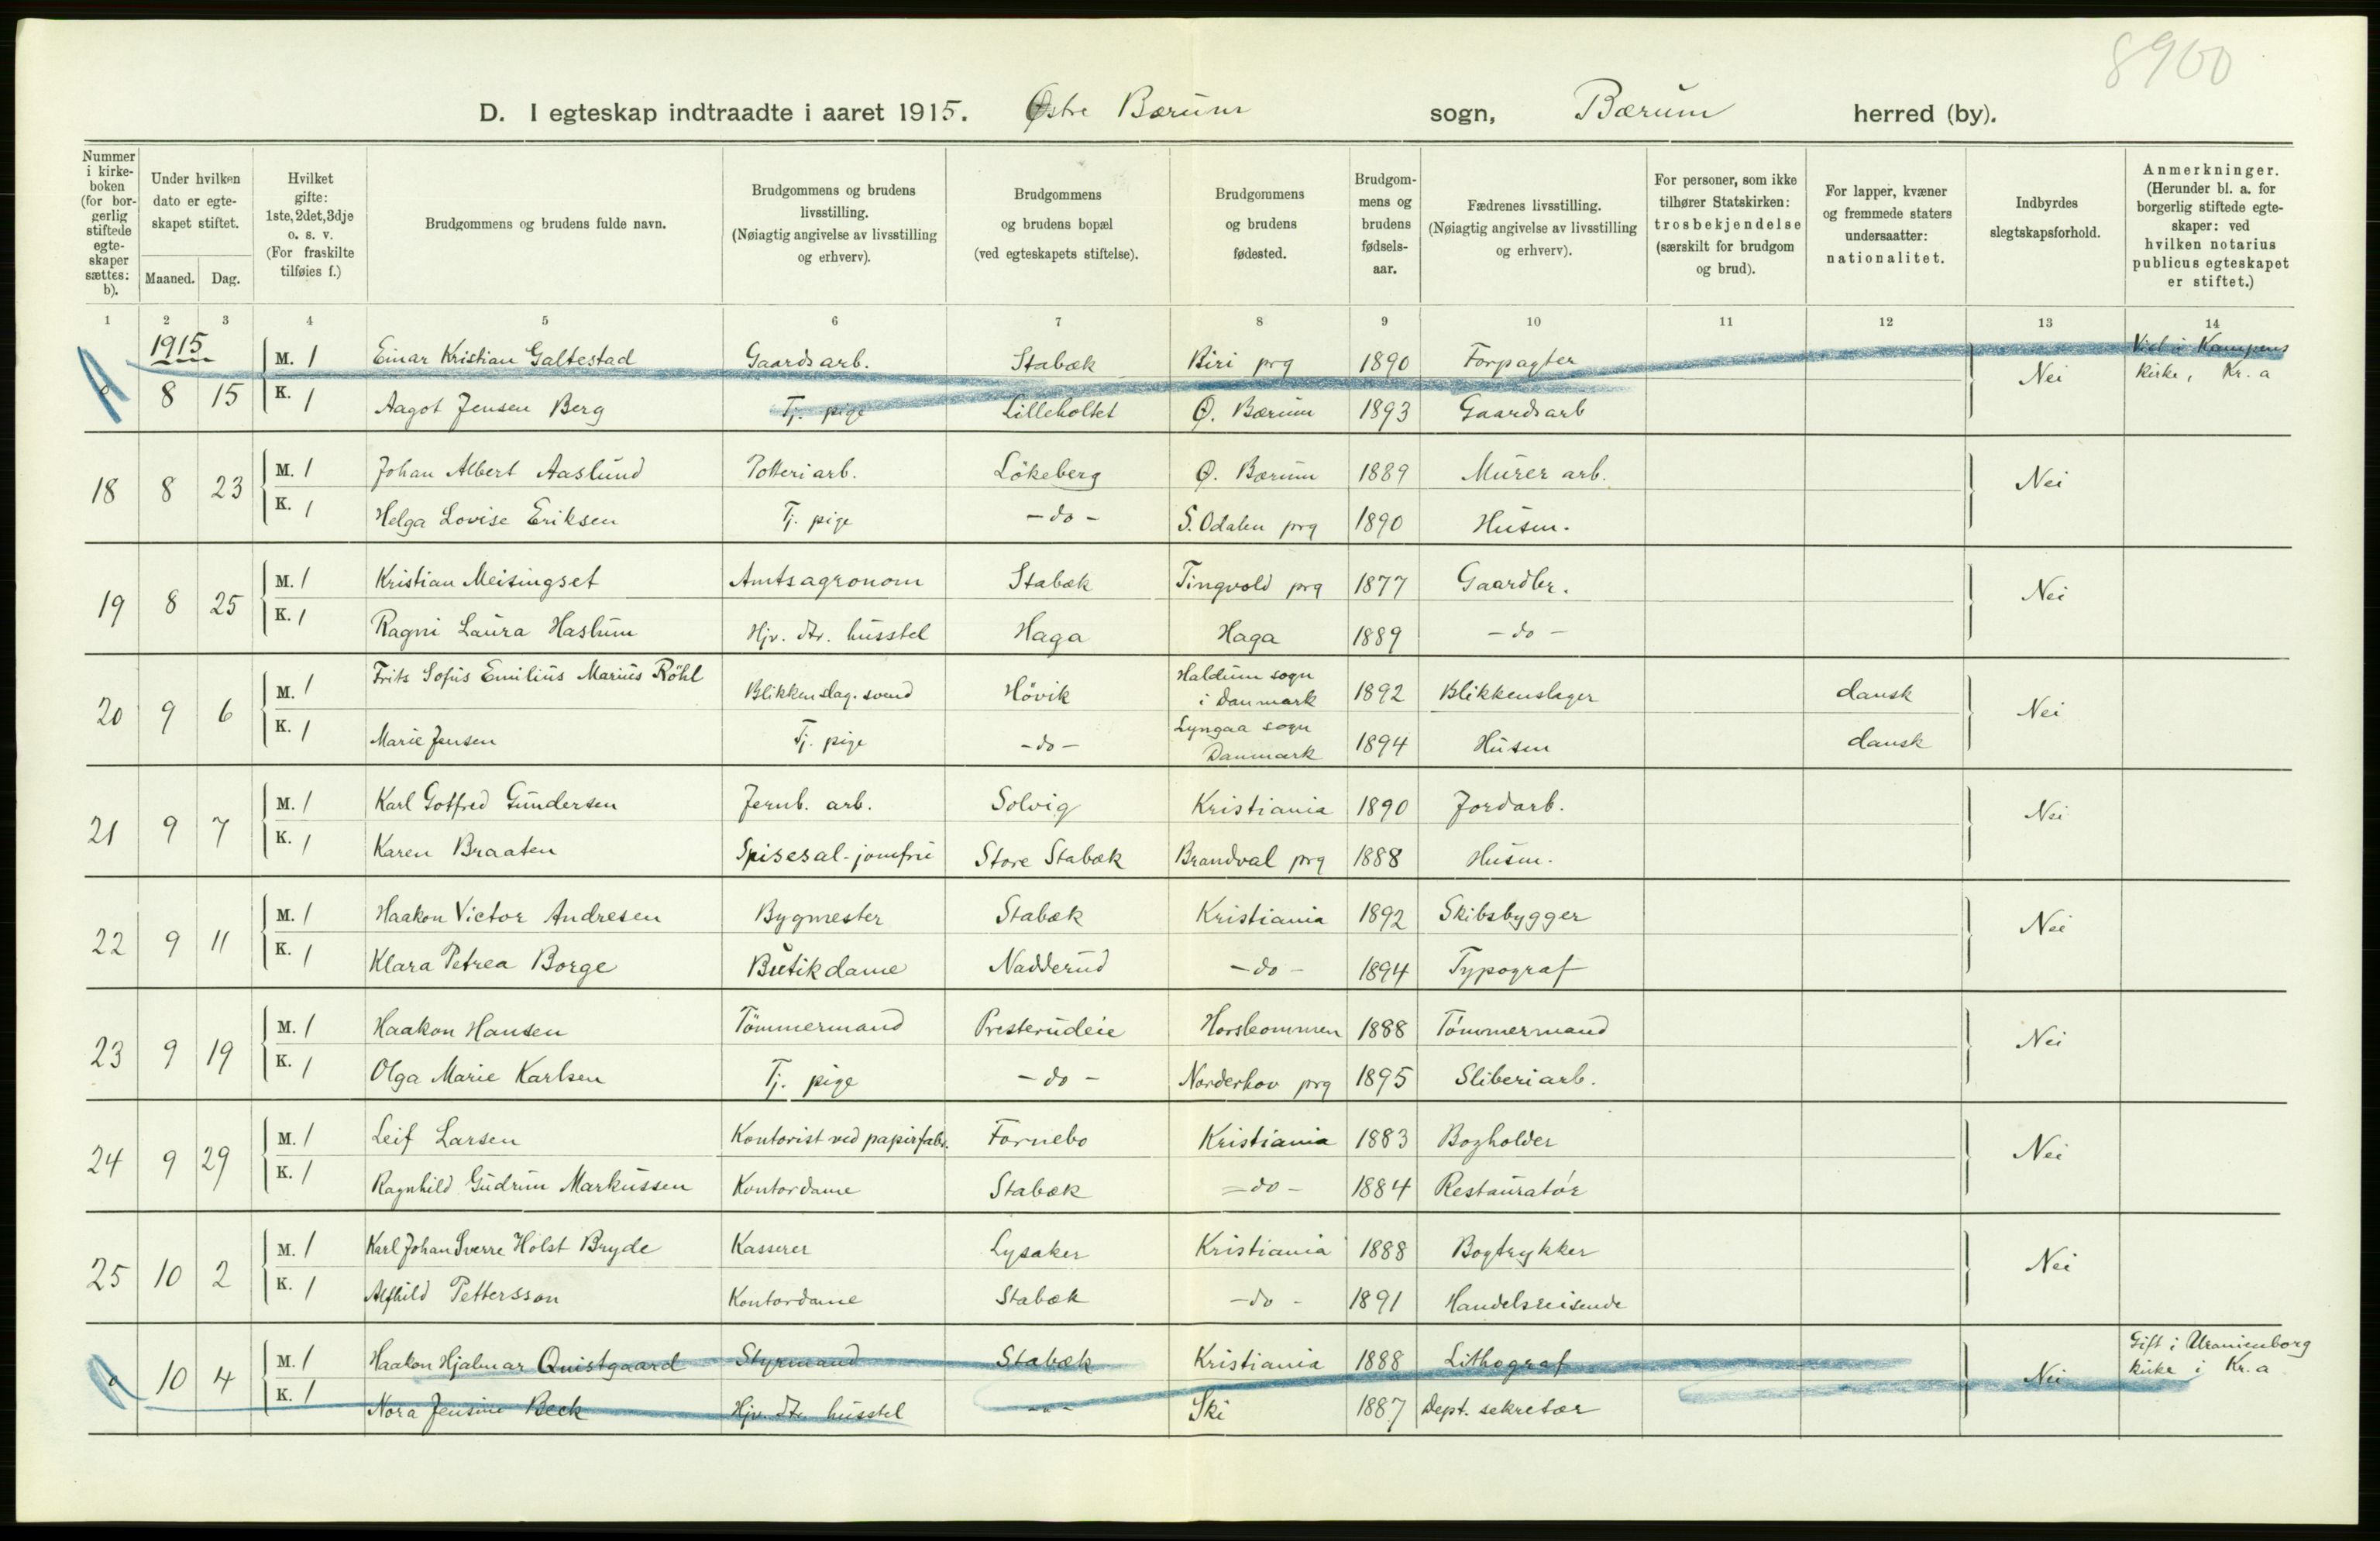 8900
D. I egteskap indtraadte i aaret 1915. Østre Bærum sogn, Bærum herred (by).
Nummer i kirkeboken (for borgerlig stiftede egteskaper sættes: b).
Under hvilken dato er egteskapet stiftet.
Maaned. Dag.
Hvilket gifte: 1ste, 2det, 3dje o. s. v. (For fraskilte tilføies f.)
Brudgommens og brudens fulde navn.
Brudgommens og brudens livsstilling. (Nøiagtig angivelse av livsstilling og erhverv).
Brudgommens og brudens bopæl (ved egteskapets stiftelse).
Brudgommens og brudens fødested.
Brudgommens og brudens fødselsaar.
Fædrenes livsstilling. (Nøiagtig angivelse av livsstilling og erhverv).
For personer, som ikke tilhører Statskirken: trosbekjendelse (særskilt for brudgom og brud).
For lapper, kvæner og fremmede staters undersaatter: nationalitet.
Indbyrdes slegtskapsforhold.
Anmerkninger. (Herunder bl. a. for borgerlig stiftede egteskaper: ved hvilken notarius publicus egteskapet er stiftet.)
1 2 3 4 5 6 7 8 9 10 11 12 13 14
1915
M. 1 Einar Kristian Galtestad Gaardsarb. Stabæk Biri prg 1890 Forpagter Viet i Kampens
0 8 15 K. 1 Aagot Jensen Berg Tj. pige Lilleholtet Ø. Bærum 1893 Gaardsarb Nei kirke, Kr.a
M. 1 Johan Albert Aaslund Potteriarb. Løkeberg Ø. Bærum 1889 Murer arb.
18 8 23 K. 1 Helga Lovise Eriksen Tj. pige - do - S. Odalen prg 1890 Husm. Nei
M. 1 Kristian Meisingset Amtsagronom Stabæk Tingvold prg 1877 Gaardbr.
19 8 25 K. 1 Ragni Laura Haslum Hjv. dtr. husstel Haga Haga 1889 - do - Nei
M. 1 Frits Sofus Emilius Marius Röhl Blikkenslag. svend Høvik Haldum sogn i Danmark 1892 Blikkenslager dansk
20 9 6 K. 1 Marie Jensen Tj. pige - do - Lyngaa sogn Danmark 1894 Husm dansk Nei
M. 1 Karl Gotfred Gundersen Jernb. arb. Solvig Kristiania 1890 Jordarb.
21 9 7 K. 1 Karen Braaten Spisesal-jomfru Store Stabæk Brandval prg 1888 Husm. Nei
M. 1 Haakon Victor Andresen Bygmester Stabæk Kristiania 1892 Skibsbygger
22 9 11 K. 1 Klara Petrea Borge Butikdame Nadderud - do - 1894 Typograf Nei
M. 1 Haakon Hansen Tømmermand Presterudeie 1888 Tømmermand
23 9 19 K. 1 Olga Marie Karlsen Tj. pige - do - Norderhov prg 1895 Sliberiarb. Nei
M. 1 Leif Larsen Kontorist ved papirfabr. Fornebo Kristiania 1883 Bogholder
24 9 29 K. 1 Ragnhild Gudrun Markussen Kontordame Stabæk - do - 1884 Restauratør Nei
M. 1 Karl Johan Sverre Holst Bryde Kasserer Lysaker Kristiania 1888 Bogtrykker
25 10 2 K. 1 Alfhild Pettersson Kontordame Stabæk - do - 1891 Handelsreisende Nei
M. 1 Haakon Hjalmar Quistgaard Styrmand Stabæk Kristiania 1888 Lithograf Gift i Uranienborg
0 10 4 K. 1 Nora Jensine Beck Hjv. dtr. husstel - " - Ski 1887 Dept. sekretær Nei kirke i Kr.a